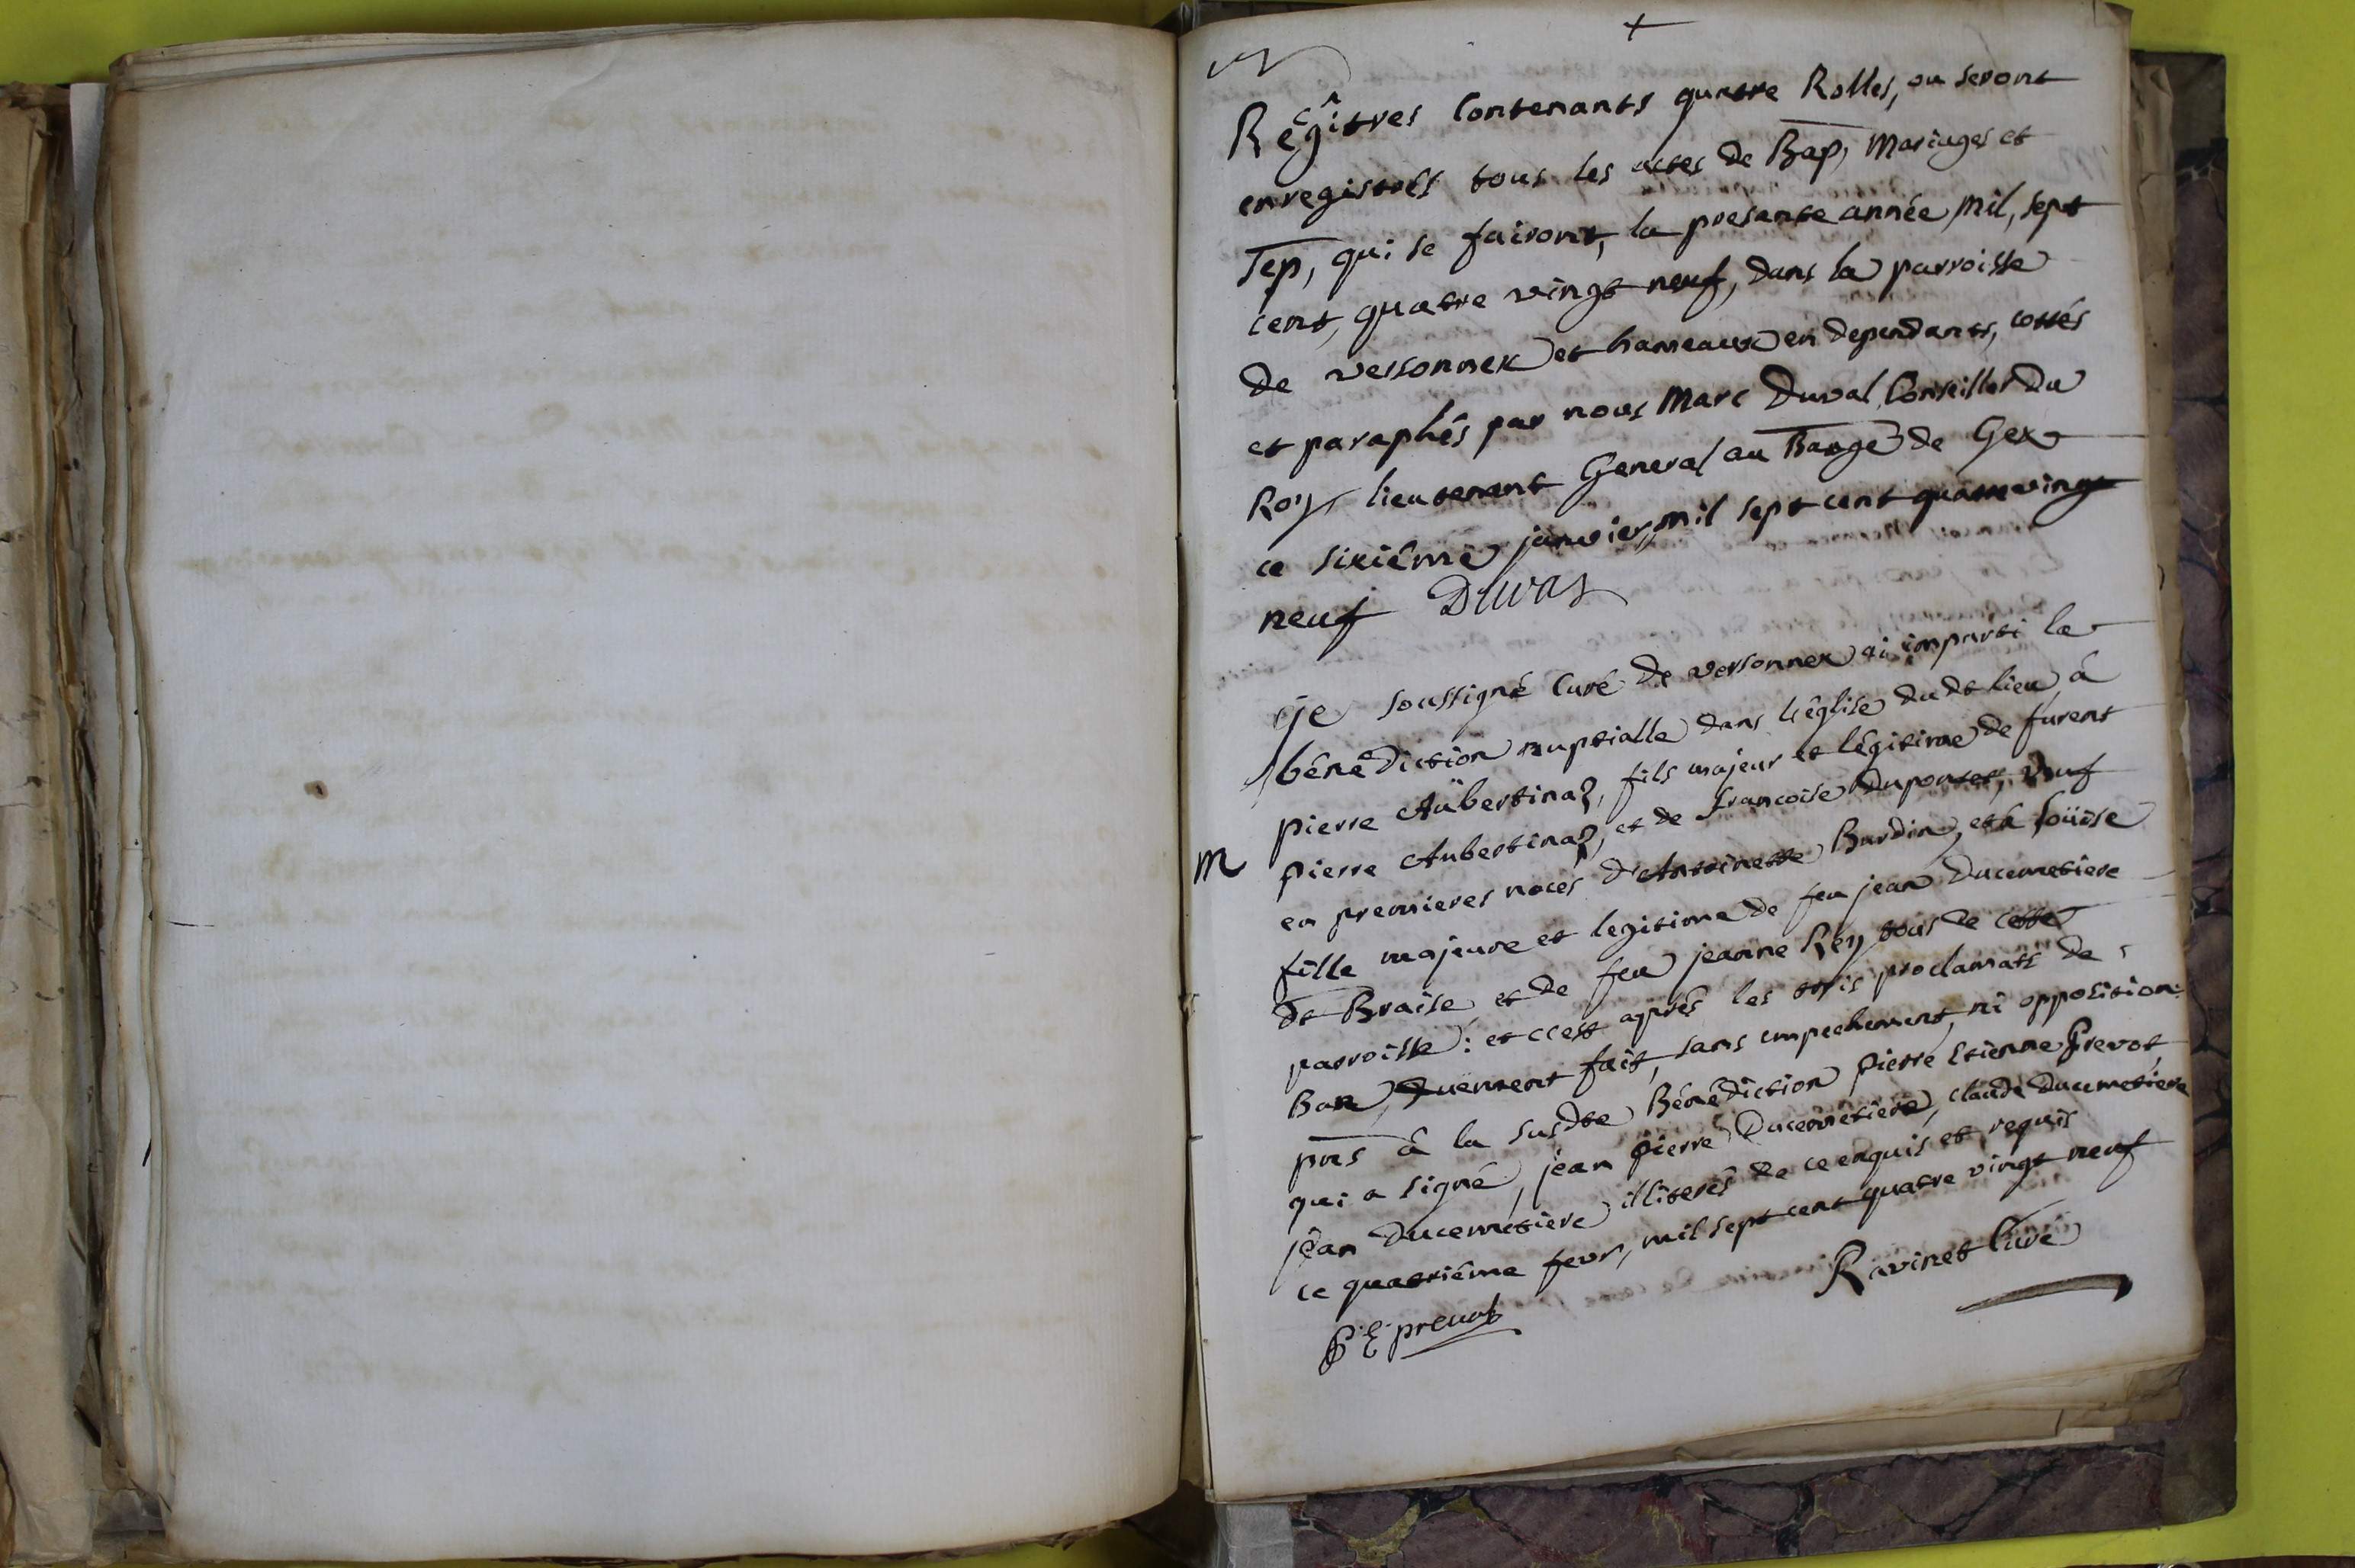 +
Regîtres Contenants quatre Rolles, ou seront
enregistrés tous les actes de Bap, Mariages et
Sep, qui se fairont, la presente année, mil, sept
cent, quatre vingt neuf, dans la parroisse
de versonnex et hameaux en dependants, cottés
et paraphés par nous Marc Duval, Conseiller du
Roy lieutenent General au Baage de Gex
ce sixiême janvier, mil sept cent quattre vingt
neuf Duval
je soussigné Curé de versonnex ai imparti la
bénédiction nuptialle dans l'église dudt lieu, à
pierre Aübertinaz, fils majeur et légitime de furent
M
pierre Aubertinaz, et de francoise duponte, veuf
en premieres noces d'Antoinette Burdin, et à loüise
fille majeure et legitime de feu jean ducemetiere
dt Braise, et de feu jeanne Rey tous de cette
parroisse : et c'est après les trois proclamats de
Ban, duement fait, sans empechement, ni opposition:
pnts à la susdte Bénédiction pierre Etienne Prevot,
qui a signé, jean pierre Ducemetiere, claude ducemetiere
jean Ducemetiere illiterés de ce enquis et requis
ce quatriême fevr, mil sept cent quatre vingt neuf
Ravinet Curé
P: E prevot